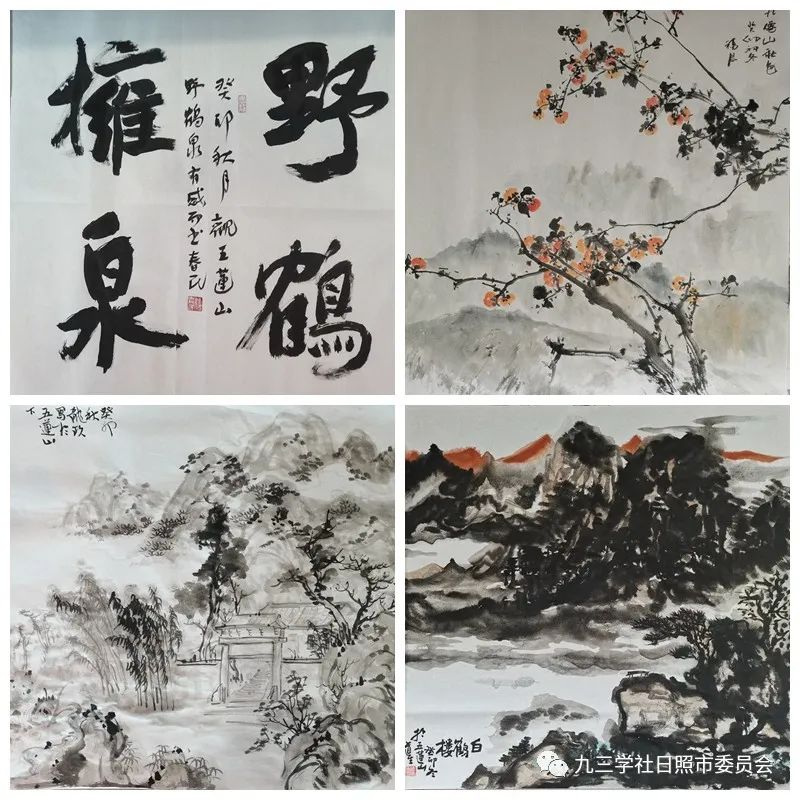 野鶴
擁泉
癸卯秋月觀五蓮山
野鶴泉有感而书春民
山秋色
癸卯初冬
癸卯
秋
寫於
五蓮山
下
白鶴樓
癸卯冬
於五蓮山
九三学社日照市委员会